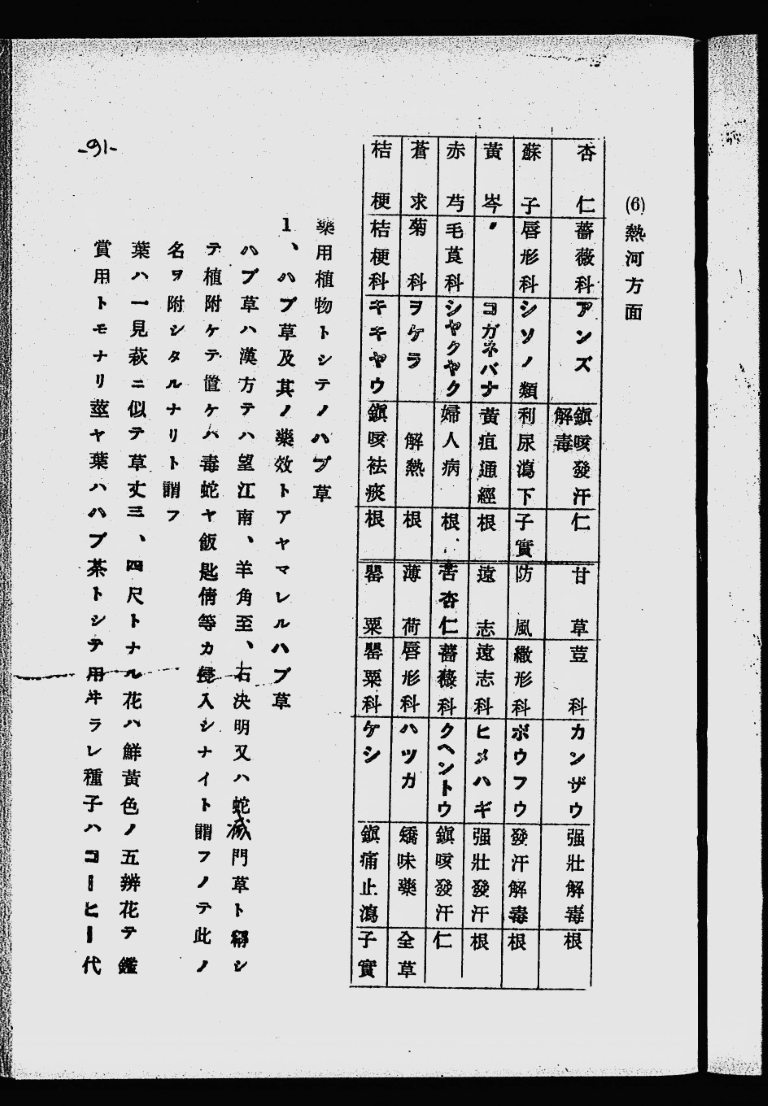 (6) 熱河方面
杏仁 薔薇科 アンズ 鎭咳發汗解毒 仁 甘草 荳科 カンザウ 强壯解毒 根
蘇子 唇形科 シソノ類 利尿瀉下 子實 防風 繖形科 ボウフウ 發汗解毒 根
黃岑 〃 コガネバナ 黃疸通經 根 遠志 遠志科 ヒメハギ 强壯發汗 根
赤芍 毛茛科 シヤクヤク 婦人病 根 苦杏仁 薔薇科 クヘントウ 鎭咳發汗 仁
蒼求 菊科 ヲケラ 解熱 根 薄荷 唇形科 ハツカ 矯味藥 全草
桔梗 桔梗科 キキヤウ 鎭咳袪痰 根 罌粟 罌粟科 ケシ 鎭痛止瀉 子實
藥用植物トシテノハブ草
1、ハブ草及其ノ藥效トアヤマレルハブ草
ハブ草ハ漢方テハ望江南、羊角至、石決明又ハ蛇滅門草ト稱シ
テ植附ケテ置ケハ毒蛇ヤ飯匙倩等カ侵入シナイト謂フノテ此ノ
名ヲ附シタルナリト謂フ
葉ハ一見萩ニ似テ草丈三、四尺トナル花ハ鮮黃色ノ五辨花テ鑑
賞用トモナリ莖ヤ葉ハハブ茶トシテ用ヰラレ種子ハコーヒー代
-91-